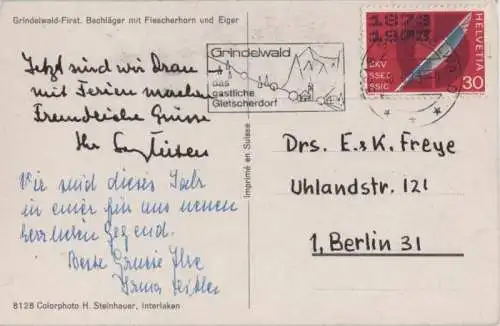 Grindelwald-First. Bachläger mit Fiescherhorn und Eiger
Jetzt sind wir dran
mit Ferien machen
Freundliche Grüsse
Ihr
Wir sind dieses Jahr
in einer für uns neuen
herrlichen Gegend.
Beste Grüsse Ihre
Hanna
8128 Colorphoto H. Steinhauer, Interlaken
Imprimé en Suisse
Grindelwald
das
gastliche
Gletscherdorf
1873
1973
SKV
SSEC
SSIC
HELVETIA
30
Drs. E. & K. Freye
Uhlandstr. 121
1, Berlin 31